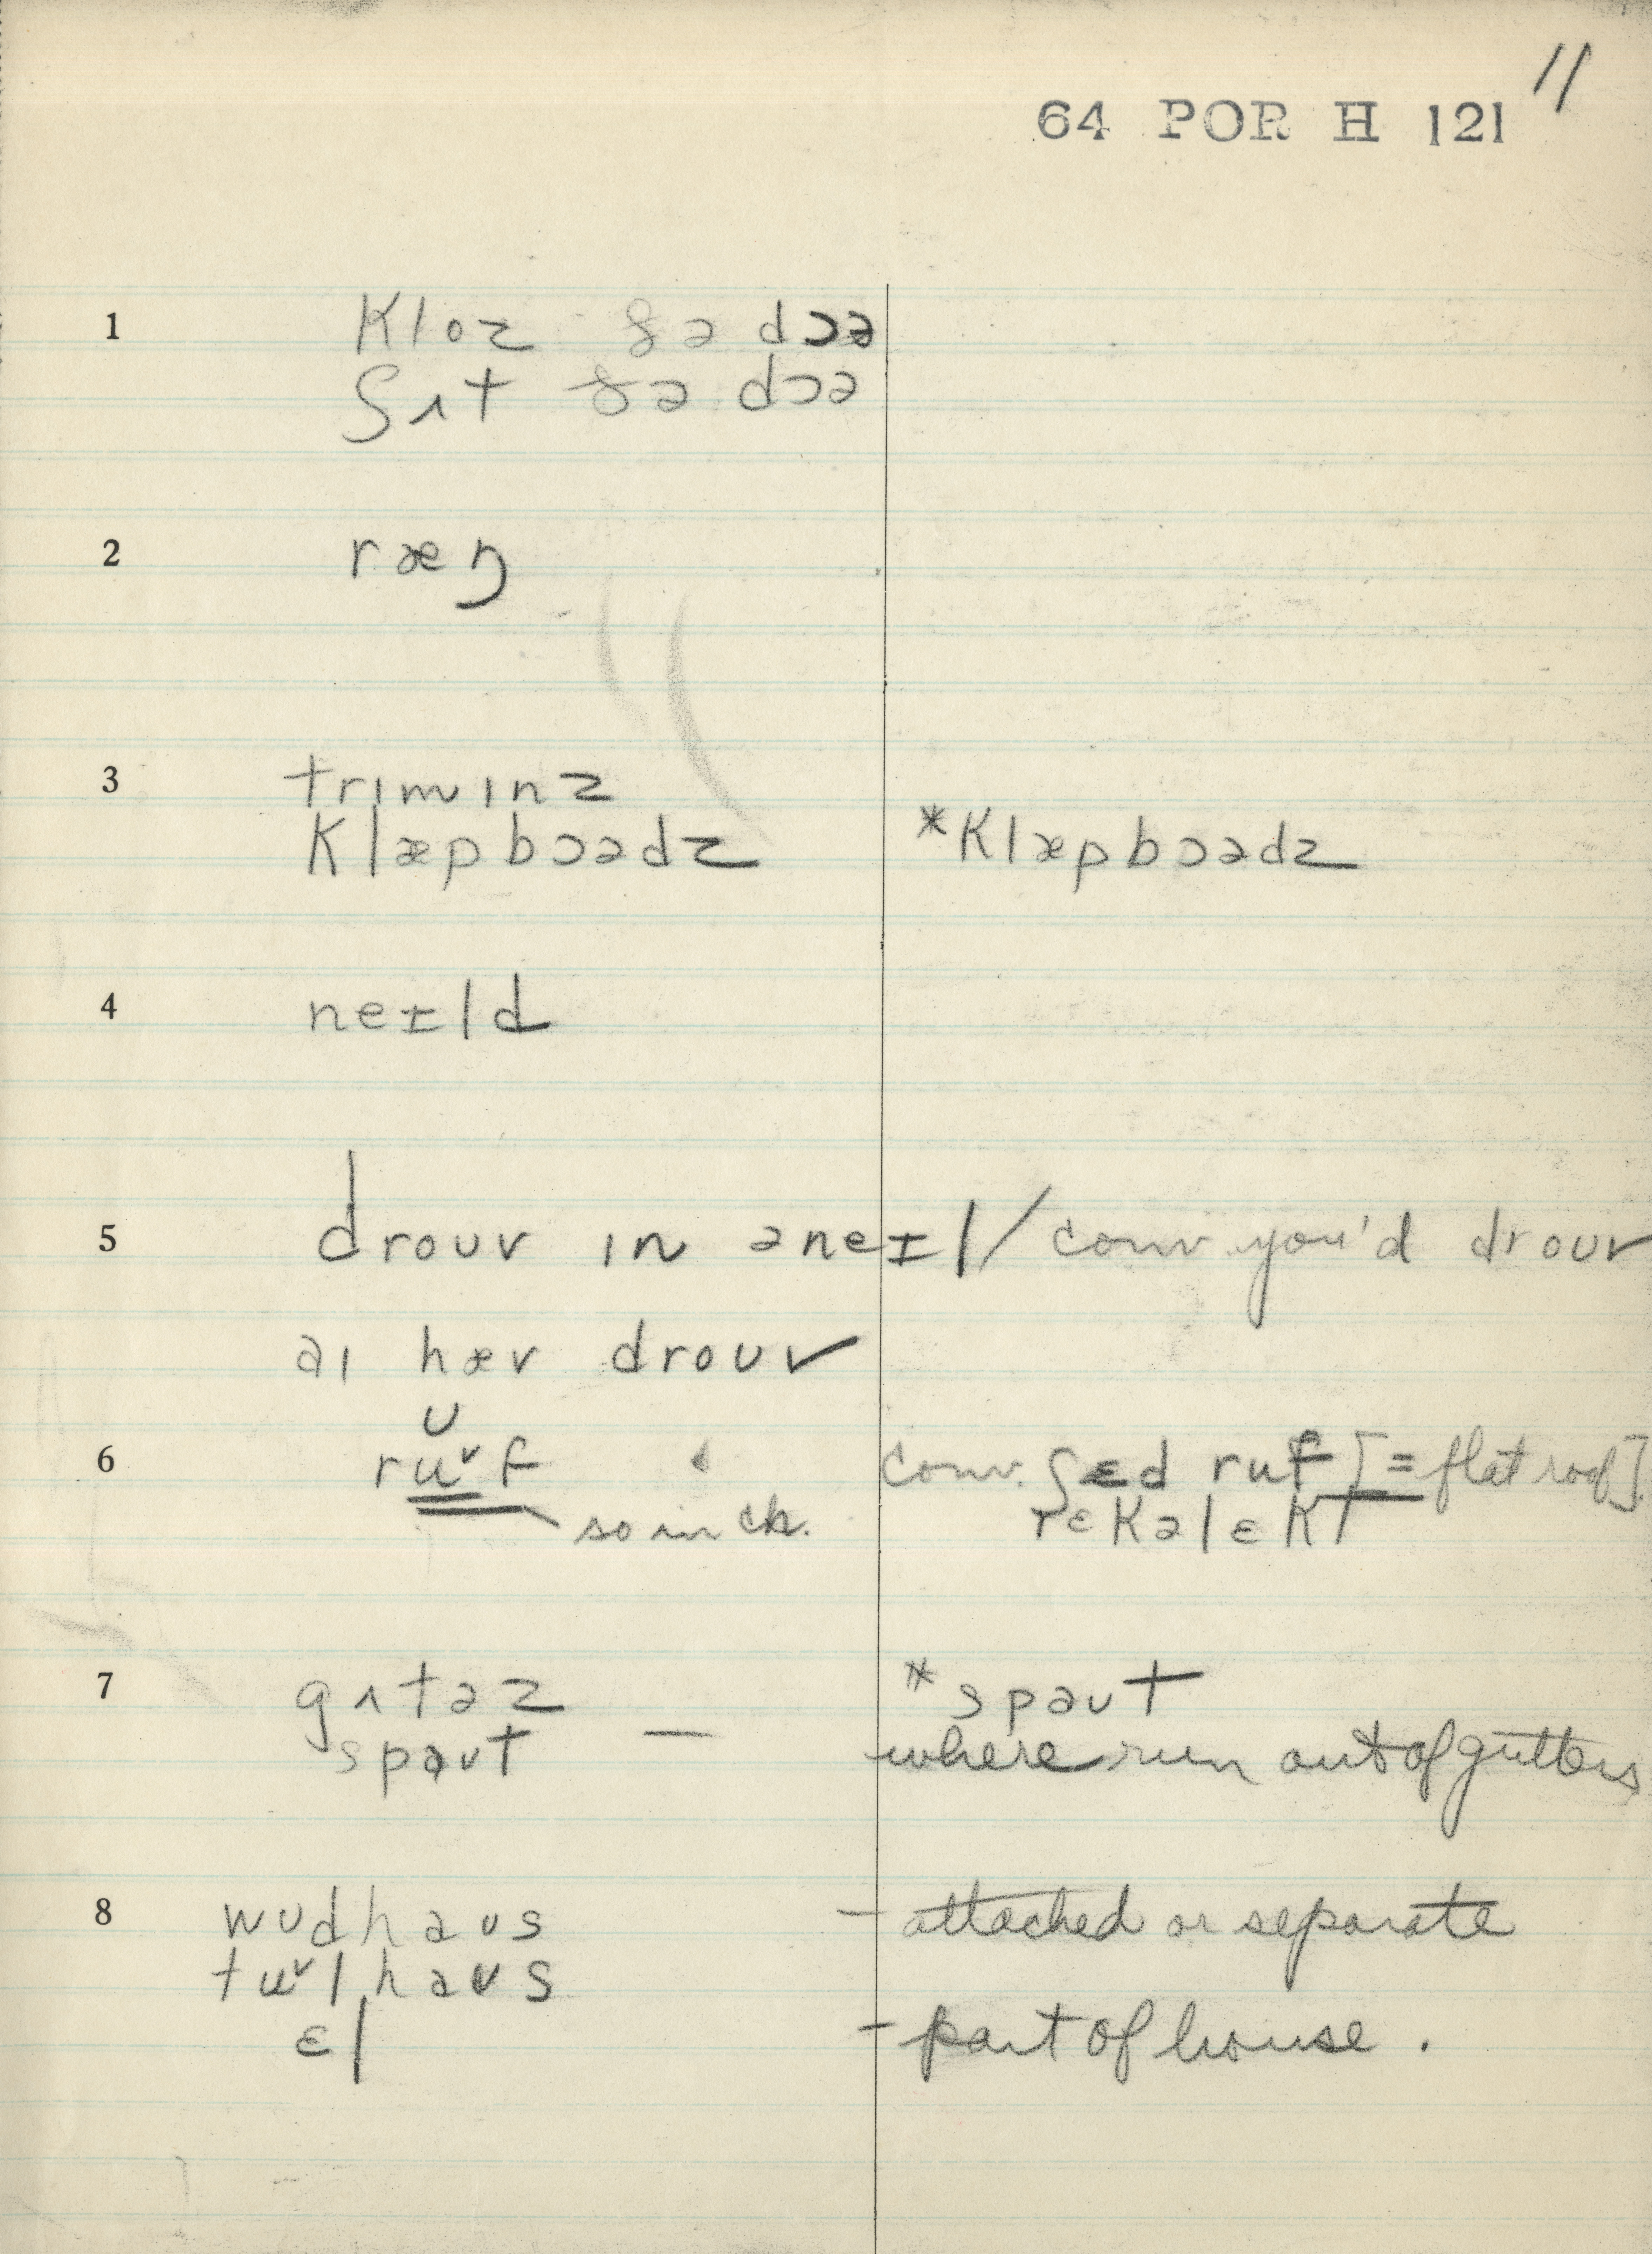 11
64 POR H 121
1 kloz ðə dɔə
ʃʌt ðə dɔə
2 ræŋ
3 trɪmɪnz
klæpbɔədz *klæpbɔədz
4 neɪld
5 droʊv ɪn ə neɪl / conv. you'd droʊv
aɪ hæv droʊv
ʊ
6 ruˇf conv. ʃɛd ruf [= flat roof]
so in ch. rɛkəlɛkt
7 gʌtəz *spaʊt
spaʊt — where run out of gutters
8 wʊdhaʊs - attached or separate
tuˇlhaʊs
ɛl - part of house.